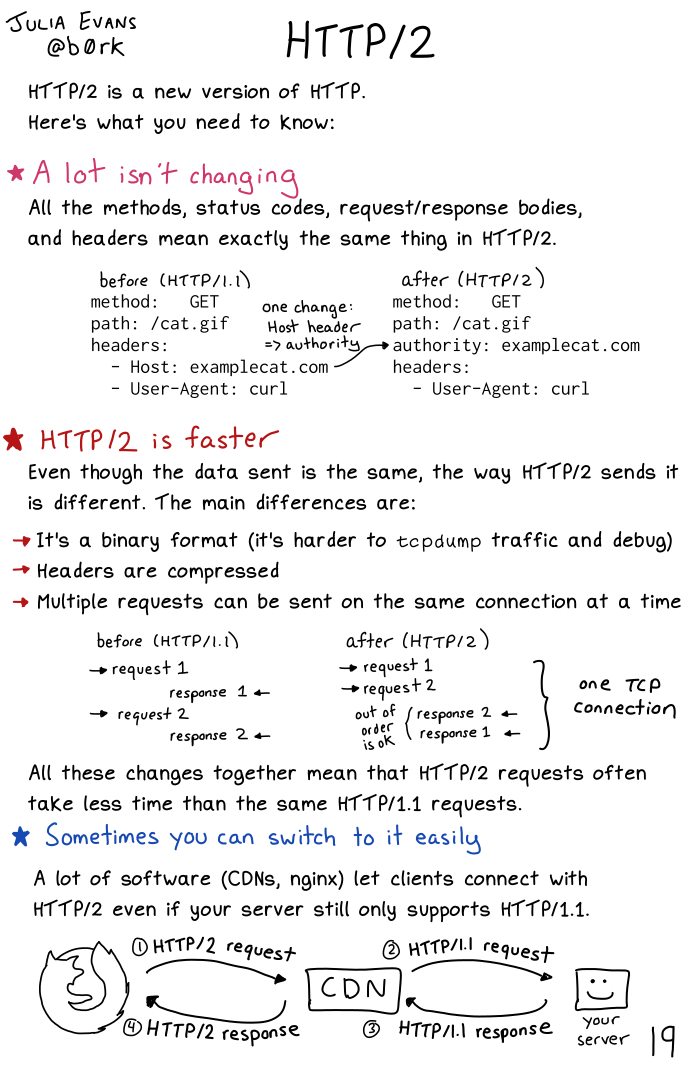 JULIA EVANS
@b0rk
HTTP/2
HTTP/2 is a new version of HTTP.
Here's what you need to know:
A lot isn't changing
All the methods, status codes, request/response bodies,
and headers mean exactly the same thing in HTTP/2.
before (HTTP/1.1)
method: GET
path: /cat.gif
headers:
- Host: examplecat.com
- User-Agent: curl
one change:
Host header
=> authority
after (HTTP/2)
method: GET
path: /cat.gif
authority: examplecat.com
headers:
- User-Agent: curl
HTTP/2 is faster
Even though the data sent is the same, the way HTTP/2 sends it
is different. The main differences are:
→ It's a binary format (it's harder to tcpdump traffic and debug)
→ Headers are compressed
→ Multiple requests can be sent on the same connection at a time
before (HTTP/1.1)
→ request 1
response 1 ←
→ request 2
response 2 ←
after (HTTP/2)
→ request 1
→ request 2
out of
order
is ok
response 2 ←
response 1 ←
one TCP
connection
All these changes together mean that HTTP/2 requests often
take less time than the same HTTP/1.1 requests.
Sometimes you can switch to it easily
A lot of software (CDNs, nginx) let clients connect with
HTTP/2 even if your server still only supports HTTP/1.1.
① HTTP/2 request
② HTTP/1.1 request
CDN
④ HTTP/2 response
③ HTTP/1.1 response
your
server
19